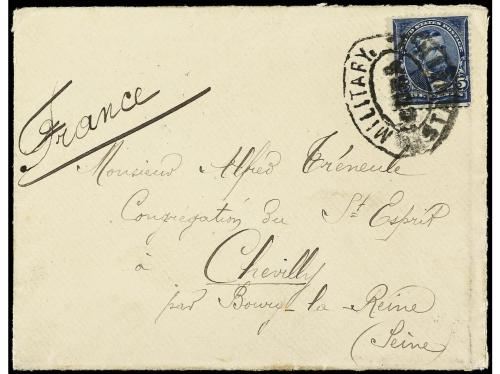 MILITARY. STA
UNITED STATES POSTAGE
France
Monsieur Alfred Tréneule
Congrégation du St Esprit
à
Chevilly
par Bourg-la-Reine
(Seine)